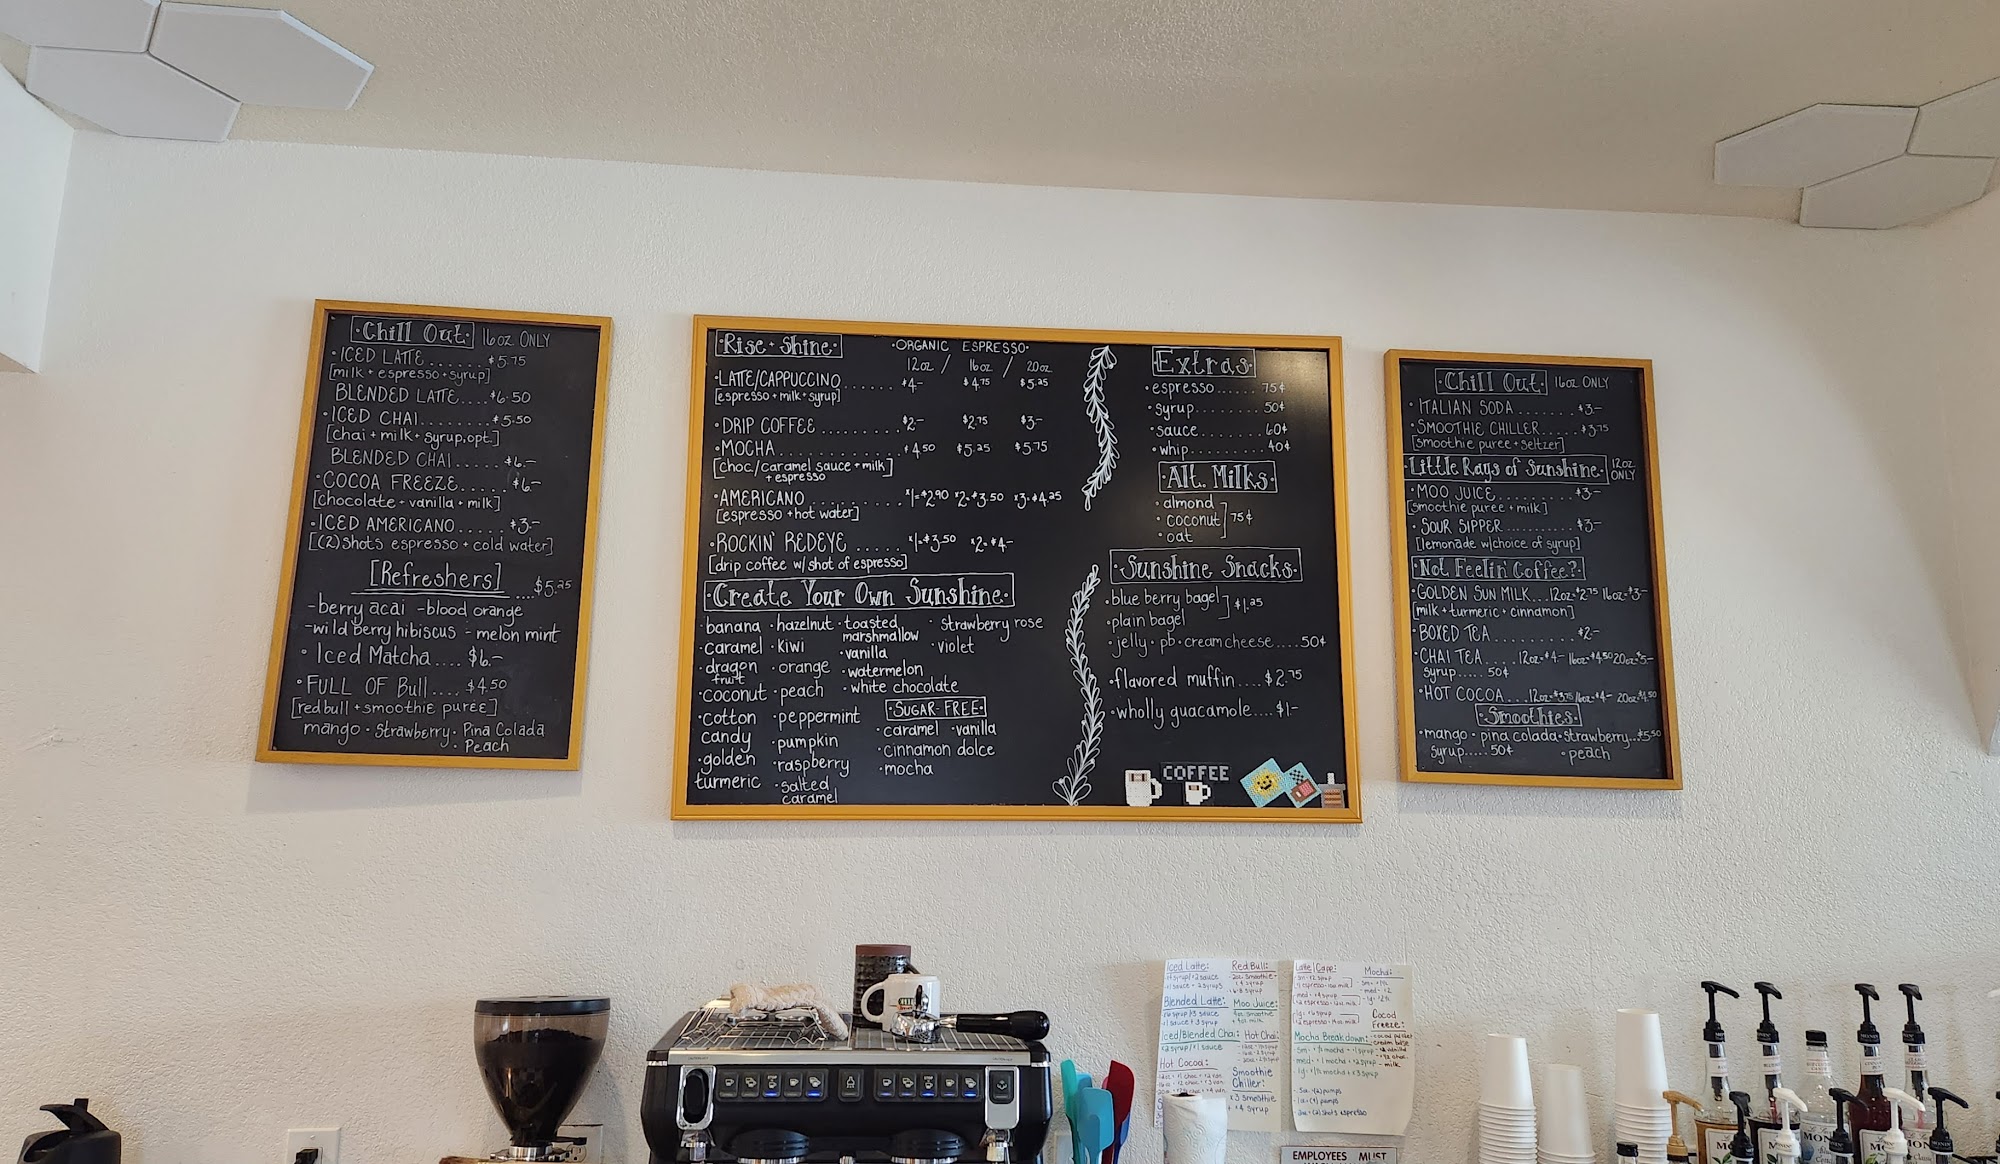 ·Chill Out· 16oz ONLY
·ICED LATTE.......$5.75
[milk + espresso + syrup]
BLENDED LATTE....$6.50
·ICED CHAI........$5.50
[chai + milk + syrup,opt.]
BLENDED CHAI.....$6.-
·COCOA FREEZE.....$6.-
[chocolate + vanilla + milk]
·ICED AMERICANO.....$3.-
[(2) shots espresso + cold water]
[Refreshers] ....$5.25
-berry acai -blood orange
-wild berry hibiscus - melon mint
· Iced Matcha.... $6.-
·FULL OF Bull.... $4.50
[redbull + smoothie puree]
mango · Strawberry · Pina Colada
· Peach
·Rise + Shine· ·ORGANIC ESPRESSO·
12oz / 16oz / 20oz
·LATTE/CAPPUCCINO...... $4- $4.75 $5.25
[espresso + milk + syrup]
·DRIP COFFEE......... $2- $2.75 $3-
·MOCHA............. $4.50 $5.25 $5.75
[choc./caramel sauce + milk
+ espresso]
·AMERICANO.......... x1=$2.90 x2=$3.50 x3=$4.25
[espresso + hot water]
·ROCKIN' REDEYE ..... x1=$3.50 x2=$4-
[drip coffee w/ shot of espresso]
·Create Your Own Sunshine·
·banana ·hazelnut ·toasted marshmallow ·strawberry rose
·caramel ·kiwi ·vanilla ·violet
·dragon fruit ·orange ·watermelon
·coconut ·peach ·white chocolate
·cotton candy ·peppermint
·pumpkin
·golden turmeric ·raspberry
·salted caramel
·SUGAR-FREE·
·caramel ·vanilla
·cinnamon dolce
·mocha
·Extras·
·espresso...... 75¢
·syrup......... 50¢
·sauce........ 60¢
·whip.......... 40¢
·Alt. Milks·
· almond
· coconut ] 75¢
· oat
·Sunshine Snacks·
·blue berry bagel ] $1.25
·plain bagel
·jelly · pb · cream cheese.....50¢
·flavored muffin....$2.75
·wholly guacamole....$1-
COFFEE
·Chill Out· 16oz ONLY
·ITALIAN SODA........$3-
·SMOOTHIE CHILLER.....$3.75
[smoothie puree + seltzer]
·Little Rays of Sunshine· 12oz ONLY
·MOO JUICE..........$3-
[smoothie puree + milk]
·SOUR SIPPER..........$3-
[lemonade w/choice of syrup]
·Not Feelin' Coffee?·
·GOLDEN SUN MILK...12oz=$2.75 16oz=$3-
[milk + turmeric + cinnamon]
·BOXED TEA.........$2-
·CHAI TEA....12oz=$4- 16oz=$4.50 20oz=$5-
syrup..... 50¢
·HOT COCOA...12oz=$3.75 16oz=$4- 20oz=$4.50
·Smoothies·
·mango · pina colada · strawberry...$5.50
syrup..... 50¢ · peach
Iced Latte:
Red Bull:
Blended Latte:
Moo Juice:
Iced/Blended Chai:
Hot Chai:
Hot Cocoa:
Smoothie
Chiller:
x3 smoothie
+4 syrup
Latte/Capp:
Mocha:
Cocoa
Freeze:
Mocha Breakdown:
EMPLOYEES MUST